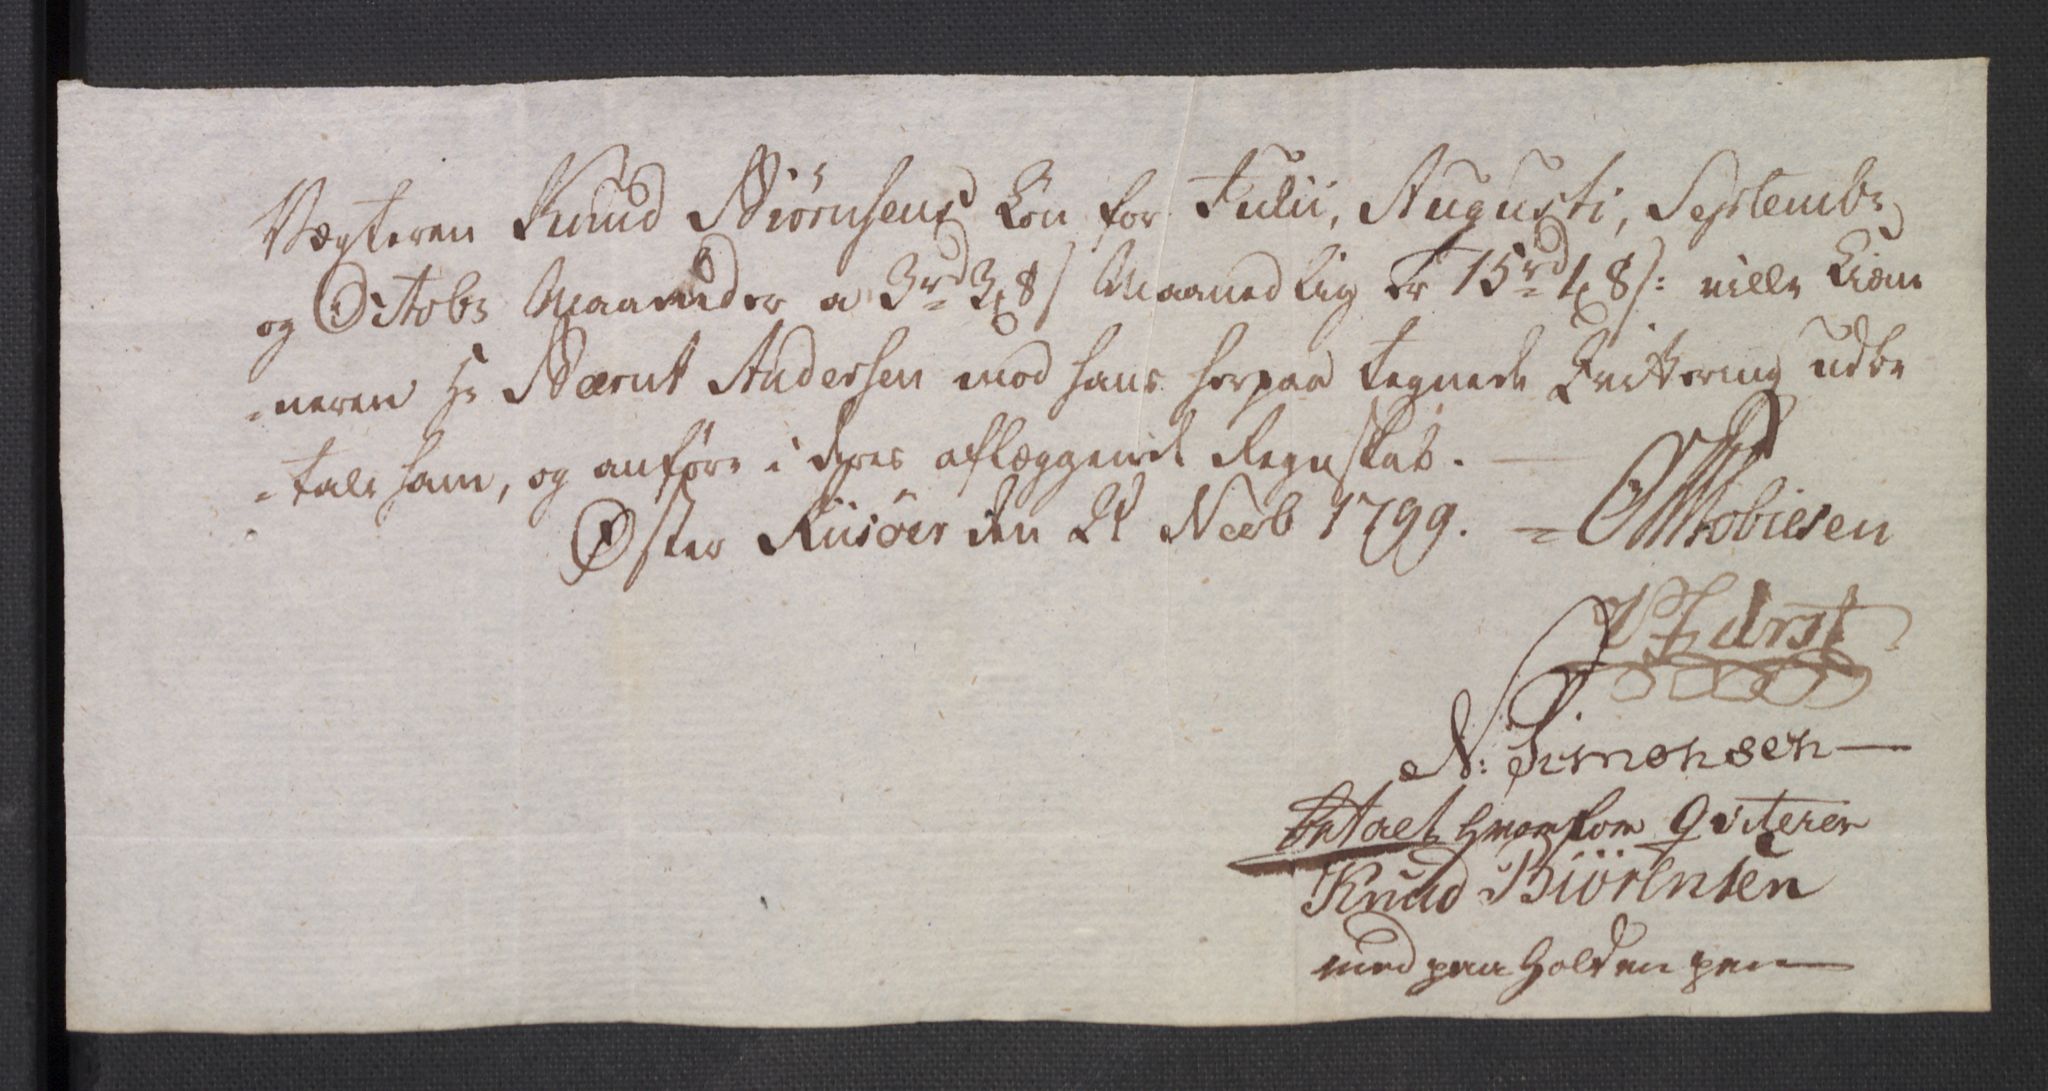 Vægteren Knud Biörnsens Lön for Julii, Augusti, Septembr
og Octobr Maaneder a 3rd 3# 8s Maanedlig er 15rd 1# 8s: ville Kiöm-
-neren Hr Bærnt Andersen mod hans herpaa tegnede Qvittering udbe
-tale ham, og anföre i deres aflæggende Regnskab.
Øster Riisöer den 2t Novb 1799. = OMTobiesen
Furst
N: Simonsen
betaelt hvorfor Qviterer
Knud Biörensen
med paa holden pen